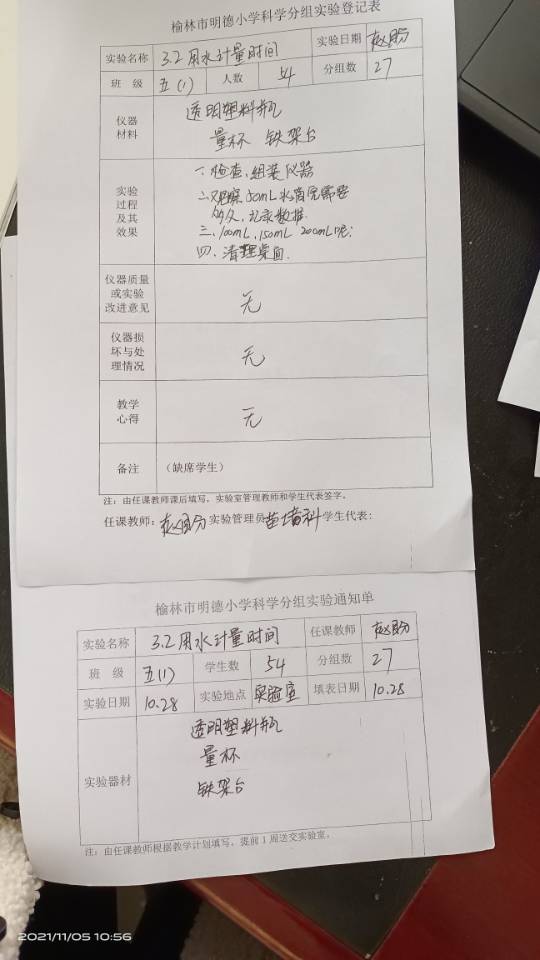 榆林市明德小学科学分组实验登记表
实验名称 3.2用水计量时间 实验日期 赵盼
班 级 五(1) 人数 54 分组数 27
仪器材料 透明塑料瓶
量杯 铁架台
实验过程及其效果 一、检查,组装仪器
二、观察50mL水滴完需要
多久,记录数据.
三、100mL,150mL 200mL呢?
四、清理桌面.
仪器质量或实验改进意见 无
仪器损坏与处理情况 无
教学心得 无
备注 (缺席学生)
注:由任课教师课后填写,实验室管理教师和学生代表签字。
任课教师:赵盼 实验管理员 学生代表:
榆林市明德小学科学分组实验通知单
实验名称 3.2用水计量时间 任课教师 赵盼
班 级 五(1) 学生数 54 分组数 27
实验日期 10.28 实验地点 实验室 填表日期 10.28
实验器材 透明塑料瓶
量杯
铁架台
注:由任课教师根据教学计划填写,提前1周送交实验室。
2021/11/05 10:56